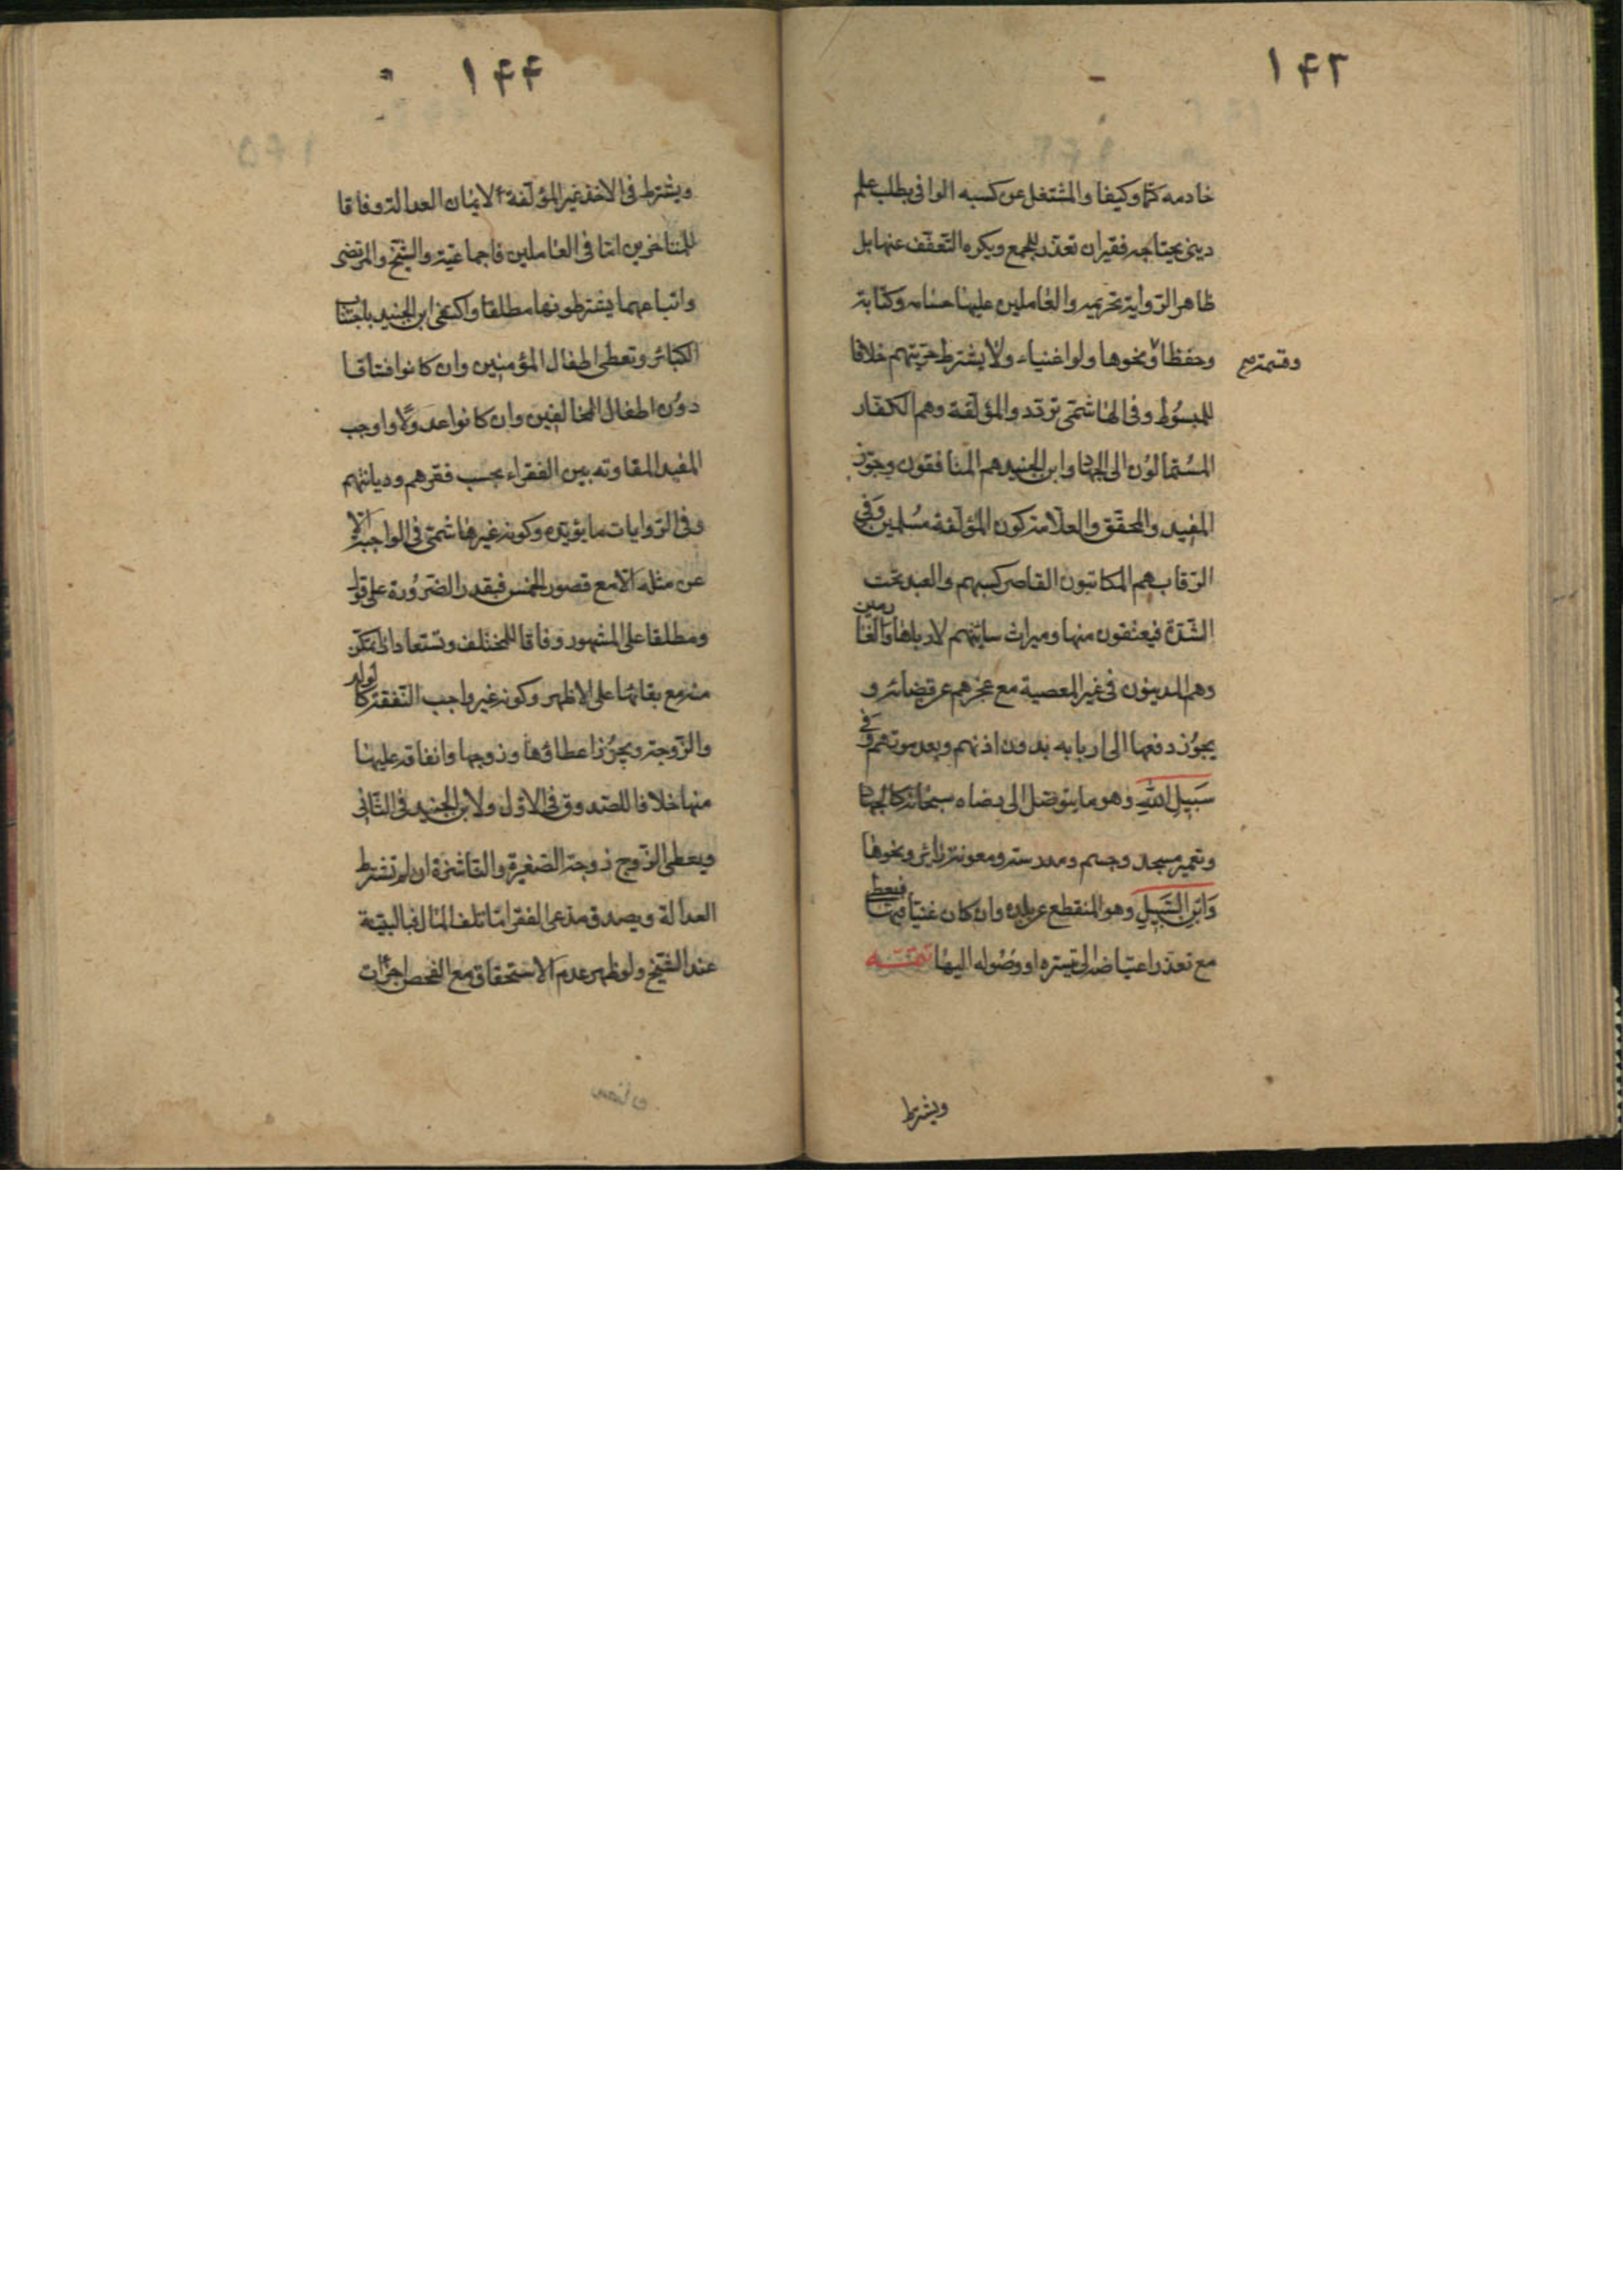 ۱۴۳
خادمه كمّا وكيفا والمشتغل عن كسبه الوافى بطلب علم
دينى يحتاجه فقيران تعذّر للجمع ويكره التعفّف عنها بل
ظاهر الرّواية تحريمه والعاملين عليها وكتابة
وحفظا ونحوها ولو اغنياء ولا يشترط حرّيتهم خلافا
وقسمة صح
للمبسُوط وفى الهاشمّى تردّد والمؤلّفة وهم الكفّار
المسُتمالوُن الى الجهاد وابن الجنيد هم المنافقون وجوّز
المفيد والمحقّق والعلّامة كون المؤلّفة مسُلمين وَفى
الرّقاب هم المكاتبون القاصر كسبهم والعبد تحت
الشّدّة فيعتقون منها وميراث سايبتهم لاربابها وَالغارمين
وهم المدينون فى غير المعصية مع عجزهم عن قضائه و
يجوُز دفعها الى اربابه بدون اذنهم وبعد موتهم وَفى
سَبيلِ اللهِ وهو ما يتوصّل الى رضاه سبحانه كالجهاد
وتعمير مسجد وجسر ومدرسة ومعونة زائر ونحوها
وَابنِ السَّبيلِ وهو المنقطع عن بلده وان كان غنيّا فيها فيعطى
مع تعذّر اعتياضه الى تيسّره او وصُوله اليها تتمّـــه
ويشترط
۱۴۴
ويشترط فى الاخذ غير المؤلّفة الايمان العدالة وفاقا
للمتاخرين امّا فى العاملين فاجماعيّة والشّيخ والمرتضى
واتباعهما يشترطونها مطلقا واكتفى ابن الجنيد باجتناب
الكبائر وتعطى اطفال المؤمنين وان كانوا فسّاقا
دوُن اطفال المخالفين وان كانوا عدولًا واوجب
المفيد المفاوته بين الفقراء بحسب فقرهم وديانتهم
وفى الرّوايات ما يؤيّده وكونه غير هاشمّى فى الواجبة الّا
عن مثله الّا مع قصور الخمس فبقدر الضّروُرة على قول
ومطلقا على المشهور وفاقا للمختلف وتستعاد ان تمكّن
منه مع بقائها على الاظهر وكونه غير واجب النّفقة كالولد
والزّوجة ويجوُز اعطاؤها زوجها وانفاقه عليها
منها خلافا للصّدوق فى الاوّل ولابن الجنيد فى الثّانى
ويعطى الزّوج زوجته الصّغيرة والنّاشزة ان لم نشترط
العدالة ويصدق مدّعى الفقر امّا تلف المال فبالبيّنة
عند الشّيخ ولو ظهر عدم الاستحقاق مع الفحص اجزأت